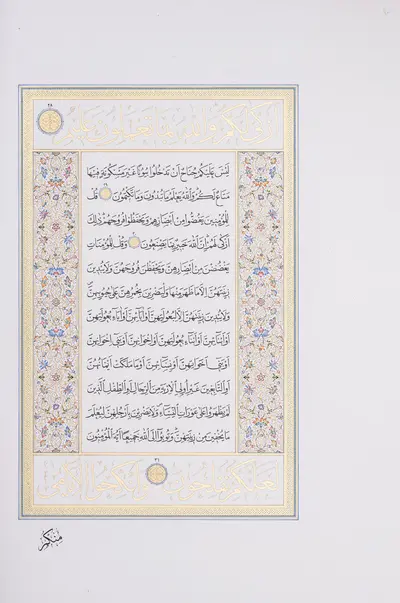 أَزْكَى لَكُمْ وَاللهُ بِمَا تَعْمَلُونَ عَلِيمٌ
لَيْسَ عَلَيْكُمْ جُنَاحٌ أَنْ تَدْخُلُوا بُيُوتًا غَيْرَ مَسْكُونَةٍ فِيهَا
مَتَاعٌ لَكُمْ وَاللهُ يَعْلَمُ مَا تُبْدُونَ وَمَا تَكْتُمُونَ قُلْ
لِلْمُؤْمِنِينَ يَغُضُّوا مِنْ أَبْصَارِهِمْ وَيَحْفَظُوا فُرُوجَهُمْ ذَلِكَ
أَزْكَى لَهُمْ إِنَّ اللهَ خَبِيرٌ بِمَا يَصْنَعُونَ وَقُلْ لِلْمُؤْمِنَاتِ
يَغْضُضْنَ مِنْ أَبْصَارِهِنَّ وَيَحْفَظْنَ فُرُوجَهُنَّ وَلَا يُبْدِينَ
زِينَتَهُنَّ إِلَّا مَا ظَهَرَ مِنْهَا وَلْيَضْرِبْنَ بِخُمُرِهِنَّ عَلَى جُيُوبِهِنَّ
وَلَا يُبْدِينَ زِينَتَهُنَّ إِلَّا لِبُعُولَتِهِنَّ أَوْ آبَائِهِنَّ أَوْ آبَاءِ بُعُولَتِهِنَّ
أَوْ أَبْنَائِهِنَّ أَوْ أَبْنَاءِ بُعُولَتِهِنَّ أَوْ إِخْوَانِهِنَّ أَوْ بَنِي إِخْوَانِهِنَّ
أَوْ بَنِي أَخَوَاتِهِنَّ أَوْ نِسَائِهِنَّ أَوْ مَا مَلَكَتْ أَيْمَانُهُنَّ
أَوِ التَّابِعِينَ غَيْرِ أُولِي الْإِرْبَةِ مِنَ الرِّجَالِ أَوِ الطِّفْلِ الَّذِينَ
لَمْ يَظْهَرُوا عَلَى عَوْرَاتِ النِّسَاءِ وَلَا يَضْرِبْنَ بِأَرْجُلِهِنَّ لِيُعْلَمَ
مَا يُخْفِينَ مِنْ زِينَتِهِنَّ وَتُوبُوا إِلَى اللهِ جَمِيعًا أَيُّهَ الْمُؤْمِنُونَ
لَعَلَّكُمْ تُفْلِحُونَ وَأَنْكِحُوا الْأَيَامَى
مِنْكُمْ